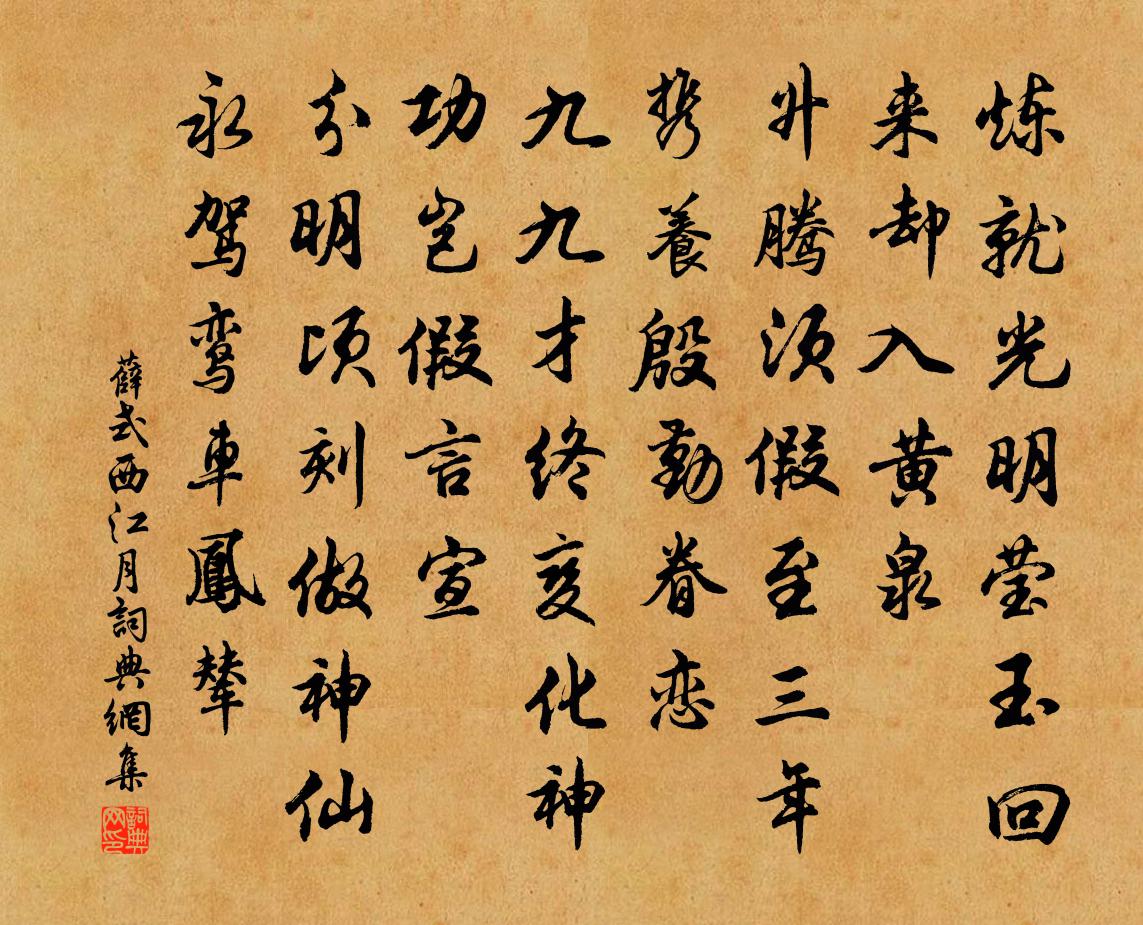 炼就光明莹玉回
来却入黄泉
升腾须假至三年
携养殷勤眷恋
九九才终变化神
功岂假言宣
分明顷刻做神仙
永驾鸾車鳳辇
薛式西江月詞典網集
詞典网印